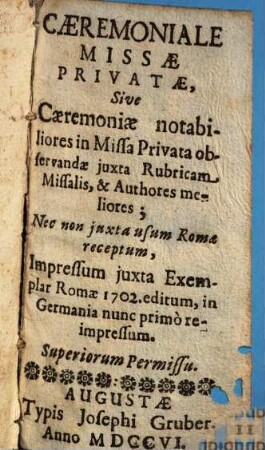 CÆREMONIALE
MISSÆ
PRIVATÆ,
Sive
Cæremoniæ notabi-
liores in Missa Privata ob-
servandæ juxta Rubricam
Missalis, & Authores me-
liores ;
Nec non juxta usum Romæ
receptum,
Impressum juxta Exem-
plar Romæ 1702. editum, in
Germania nunc primò re-
impressum.
Superiorum Permissu.
AUGUSTÆ
Typis Josephi Gruber.
Anno MDCCVI.